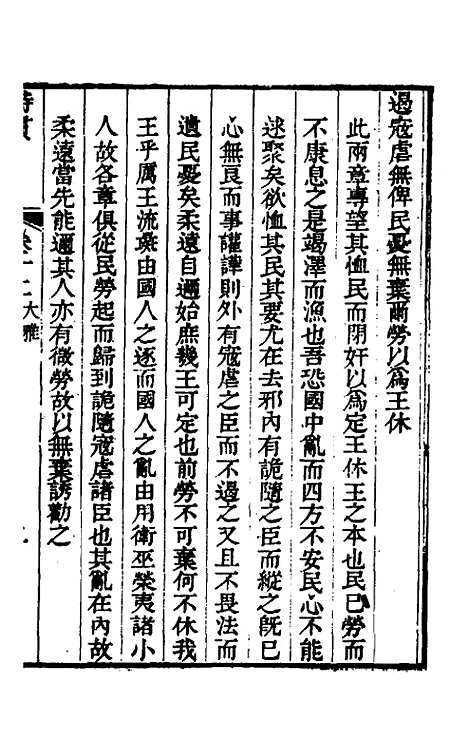 遏寇虐無俾民憂無棄爾勞以為王休
此兩章專望其恤民而閑奸以為定王休王之本也民已勞而
不康息之是竭澤而漁也吾恐國中亂而四方不安民心不能
逑聚矣欲恤其民其要尤在去邪內有詭隨之臣而縱之旣已
心無良而事讙譁則外有寇虐之臣而不遏之又且不畏法而
遺民憂矣柔遠自邇始庶幾王可定也前勞不可棄何不休我
王乎厲王流彘由國人之逐而國人之亂由用衛巫榮夷諸小
人故各章俱從民勞起而歸到詭隨寇虐諸臣也其亂在內故
柔遠當先能邇其人亦有微勞故以無棄誘勸之
詩貫 卷十二 大雅